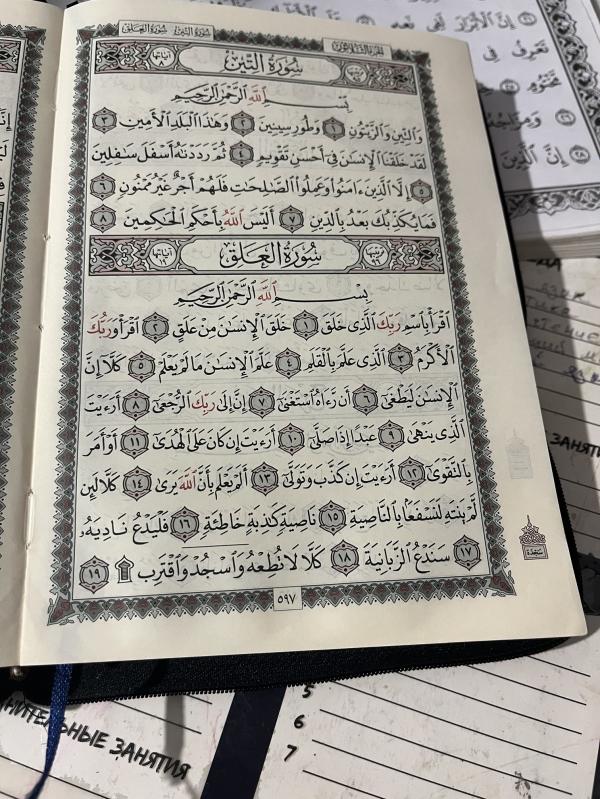 سورة التين سورة العلق
الجزء الثلاثون
سُورَةُ التِّينِ
بِسْمِ اللَّهِ الرَّحْمَٰنِ الرَّحِيمِ
وَالتِّينِ وَالزَّيْتُونِ ١ وَطُورِ سِينِينَ ٢ وَهَٰذَا الْبَلَدِ الْأَمِينِ ٣
لَقَدْ خَلَقْنَا الْإِنسَٰنَ فِي أَحْسَنِ تَقْوِيمٍ ٤ ثُمَّ رَدَدْنَٰهُ أَسْفَلَ سَٰفِلِينَ
٥ إِلَّا الَّذِينَ ءَامَنُوا وَعَمِلُوا الصَّٰلِحَٰتِ فَلَهُمْ أَجْرٌ غَيْرُ مَمْنُونٍ ٦
فَمَا يُكَذِّبُكَ بَعْدُ بِالدِّينِ ٧ أَلَيْسَ اللَّهُ بِأَحْكَمِ الْحَٰكِمِينَ ٨
سُورَةُ الْعَلَقِ
بِسْمِ اللَّهِ الرَّحْمَٰنِ الرَّحِيمِ
اقْرَأْ بِاسْمِ رَبِّكَ الَّذِي خَلَقَ ١ خَلَقَ الْإِنسَٰنَ مِنْ عَلَقٍ ٢ اقْرَأْ وَرَبُّكَ
الْأَكْرَمُ ٣ الَّذِي عَلَّمَ بِالْقَلَمِ ٤ عَلَّمَ الْإِنسَٰنَ مَا لَمْ يَعْلَمْ ٥ كَلَّا إِنَّ
الْإِنسَٰنَ لَيَطْغَىٰ ٦ أَن رَّءَاهُ اسْتَغْنَىٰ ٧ إِنَّ إِلَىٰ رَبِّكَ الرُّجْعَىٰ ٨ أَرَءَيْتَ
الَّذِي يَنْهَىٰ ٩ عَبْدًا إِذَا صَلَّىٰ ١٠ أَرَءَيْتَ إِن كَانَ عَلَى الْهُدَىٰ ١١ أَوْ أَمَرَ
بِالتَّقْوَىٰ ١٢ أَرَءَيْتَ إِن كَذَّبَ وَتَوَلَّىٰ ١٣ أَلَمْ يَعْلَم بِأَنَّ اللَّهَ يَرَىٰ ١٤ كَلَّا لَئِن
لَّمْ يَنتَهِ لَنَسْفَعًا بِالنَّاصِيَةِ ١٥ نَاصِيَةٍ كَٰذِبَةٍ خَاطِئَةٍ ١٦ فَلْيَدْعُ نَادِيَهُۥ
١٧ سَنَدْعُ الزَّبَانِيَةَ ١٨ كَلَّا لَا تُطِعْهُ وَاسْجُدْ وَاقْتَرِب ۩ ١٩
سجدة
٥٩٧
ЗАНЯТИ
НИТЕЛЬНЫЕ ЗАНЯТИЯ
5
6
7